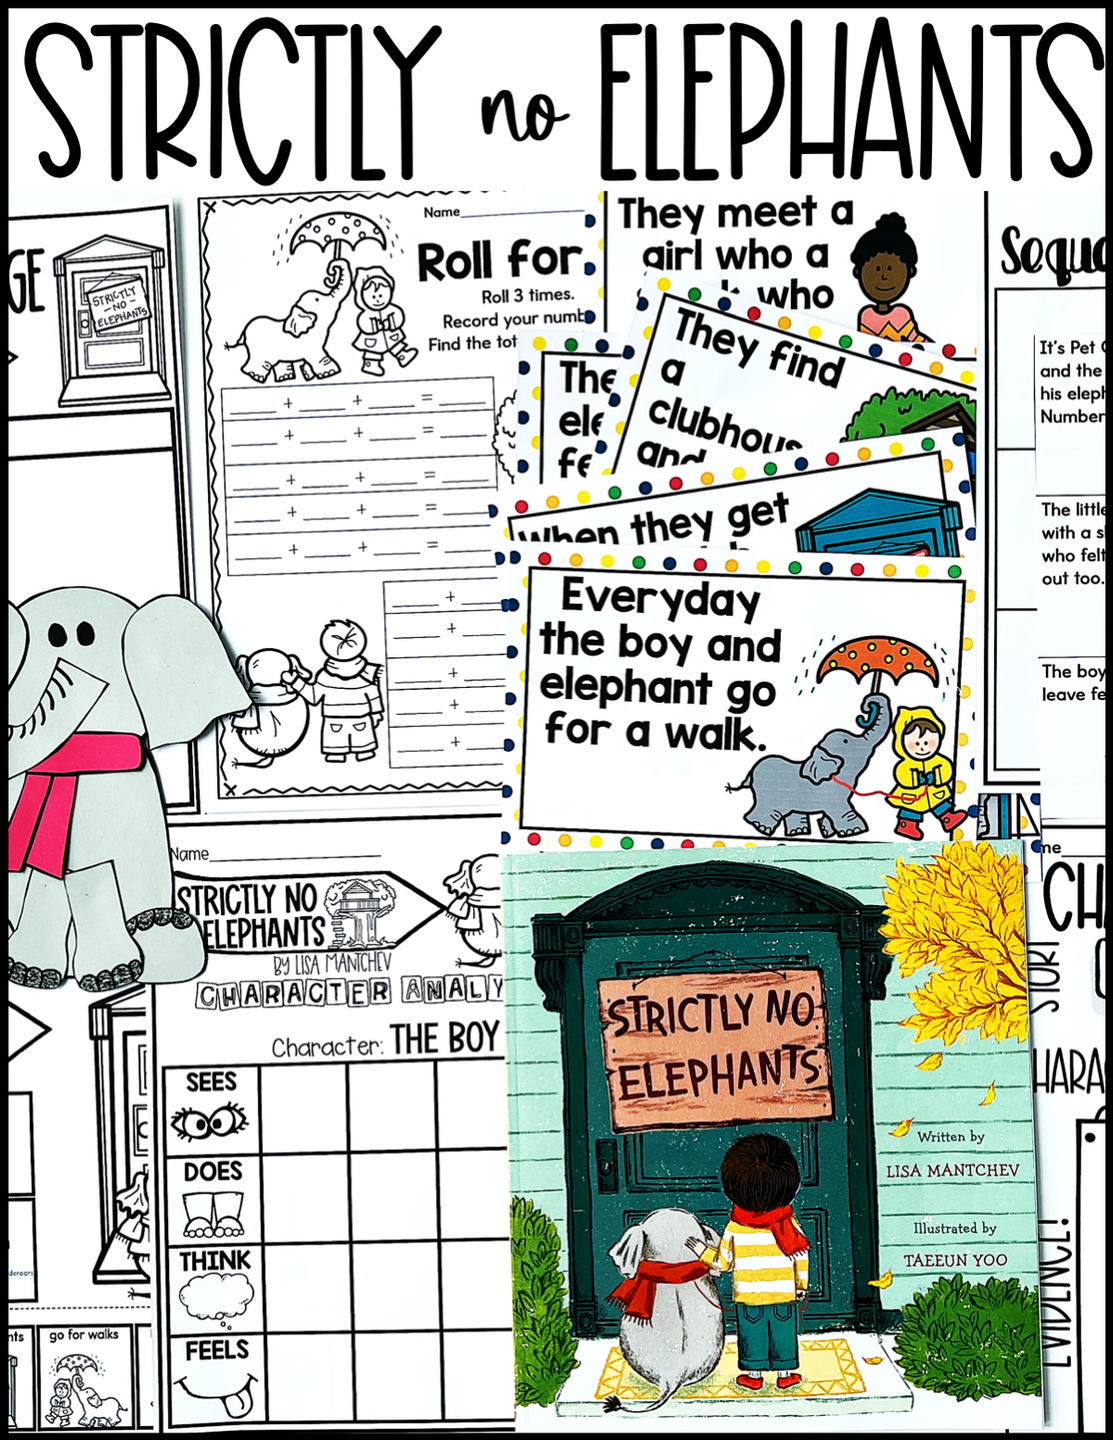 STRICTLY no ELEPHANTS
GE
STRICTLY
NO
ELEPHANTS
Name
Roll for
Roll 3 times.
Record your numb
Find the tot
+ + =
+ + =
+ + =
+ + =
+ + =
+
+
+
+
+
They meet a
girl who a
who
They find
a
clubhous
and
The
ele
fe
when they get
Everyday
the boy and
elephant go
for a walk.
Sequ
It's Pet
and the
his eleph
Number
The little
with a s
who felt
out too.
The boy
leave fe
Name
STRICTLY NO
ELEPHANTS
BY LISA MANTCHEV
CHARACTER ANALY
Character: THE BOY
SEES
DOES
THINK
FEELS
go for walks
nts
STRICTLY NO
ELEPHANTS
Written by
LISA MANTCHEV
Illustrated by
TAEEUN YOO
me
CHA
STORY
HARA
EVIDENCE!